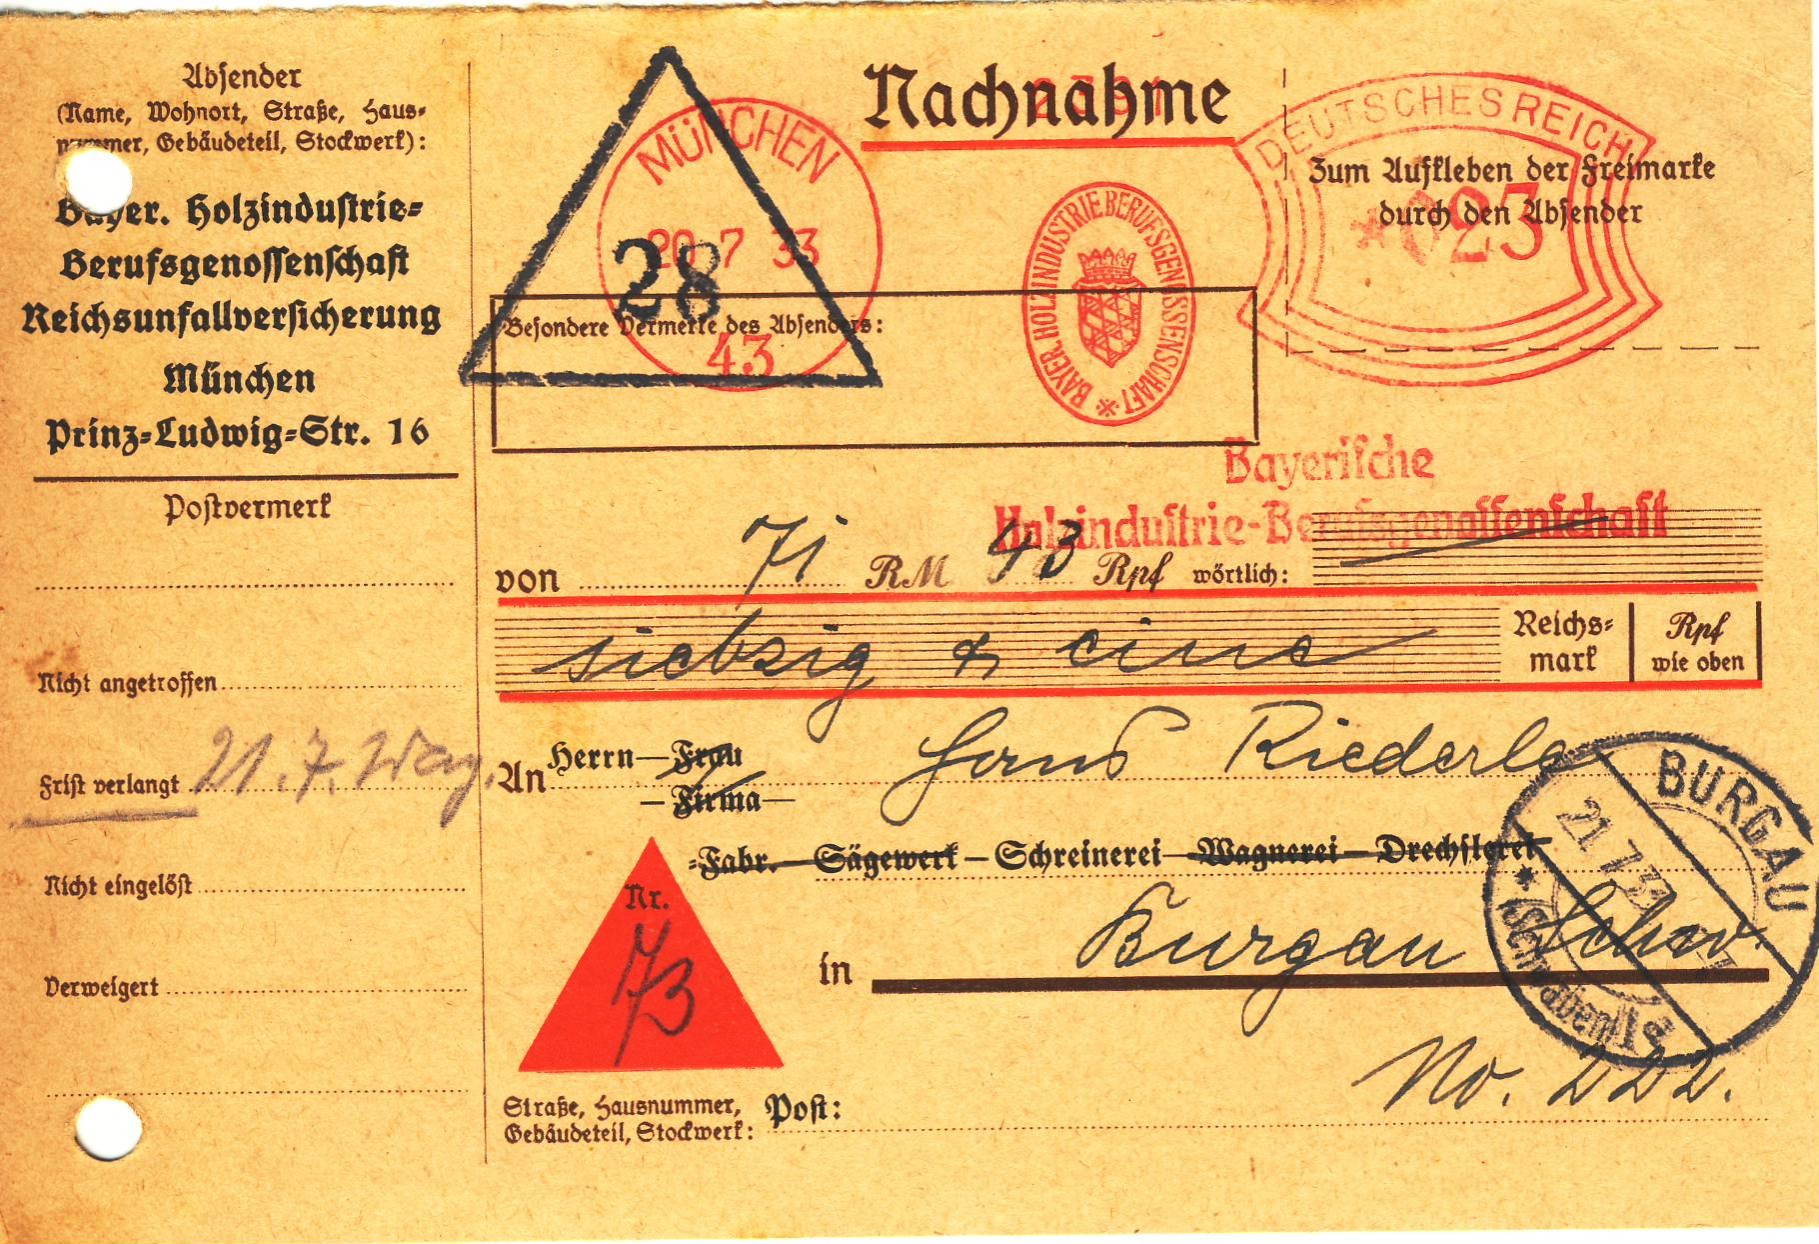 Absender
(Name, Wohnort, Straße, Haus-
nummer, Gebäudeteil, Stockwerk):
Bayer. Holzindustrie-
Berufsgenossenschaft
Reichsunfallversicherung
München
Prinz-Ludwig-Str. 16
Postvermerk
Nicht angetroffen
Frist verlangt 21.7.
Nicht eingelöst
Verweigert
Nachnahme
MÜNCHEN
20 7 33
43
28
BAYER. HOLZINDUSTRIE BERUFSGENOSSENSCHAFT
DEUTSCHES REICH
*023
Zum Aufkleben der Freimarke
durch den Absender
Besondere Vermerke des Absenders:
Bayerische
Holzindustrie-Berufsgenossenschaft
von 71 RM 43 Rpf wörtlich:
siebzig & eine Reichs-
mark
Rpf
wie oben
An Herrn — Frau Hans Riederle
— Firma —
-Fabr. — Sägewerk — Schreinerei — Wagnerei — Drechslerei
Nr.
73
in Burgau Schw.
BURGAU
21 7 33
* (Schwaben)
No. 222.
Straße, Hausnummer, Post:
Gebäudeteil, Stockwerk: